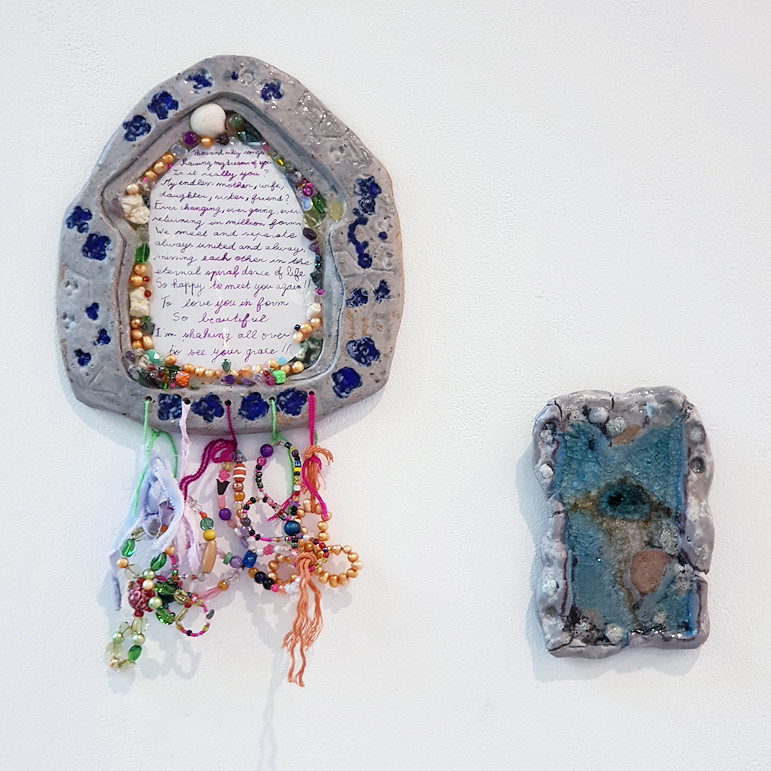 Thousand milky songs
Praising my dreams of you
Is it really you?
My endless mother, wife,
daughter, sister, friend?
Ever changing, ever going, ever
returning in million forms
We meet and separate
always united and always
missing each other in the
eternal spiral dance of life
So happy to meet you again!!
To love you in form
So beautiful
I'm shaking all over
to see your grace!!